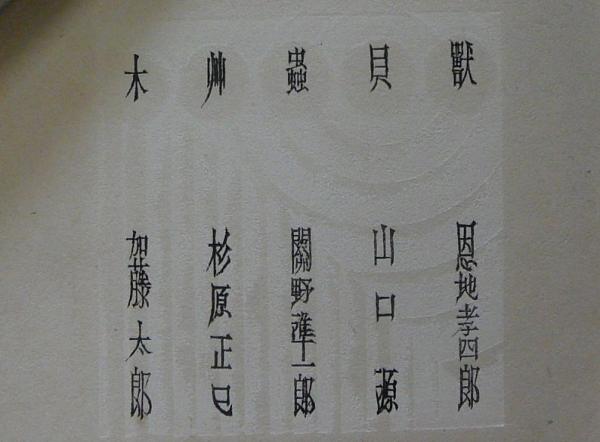 獸 恩地孝四郎
貝 山口 源
蟲 關野準一郎
艸 杉原正巳
木 加藤太郎